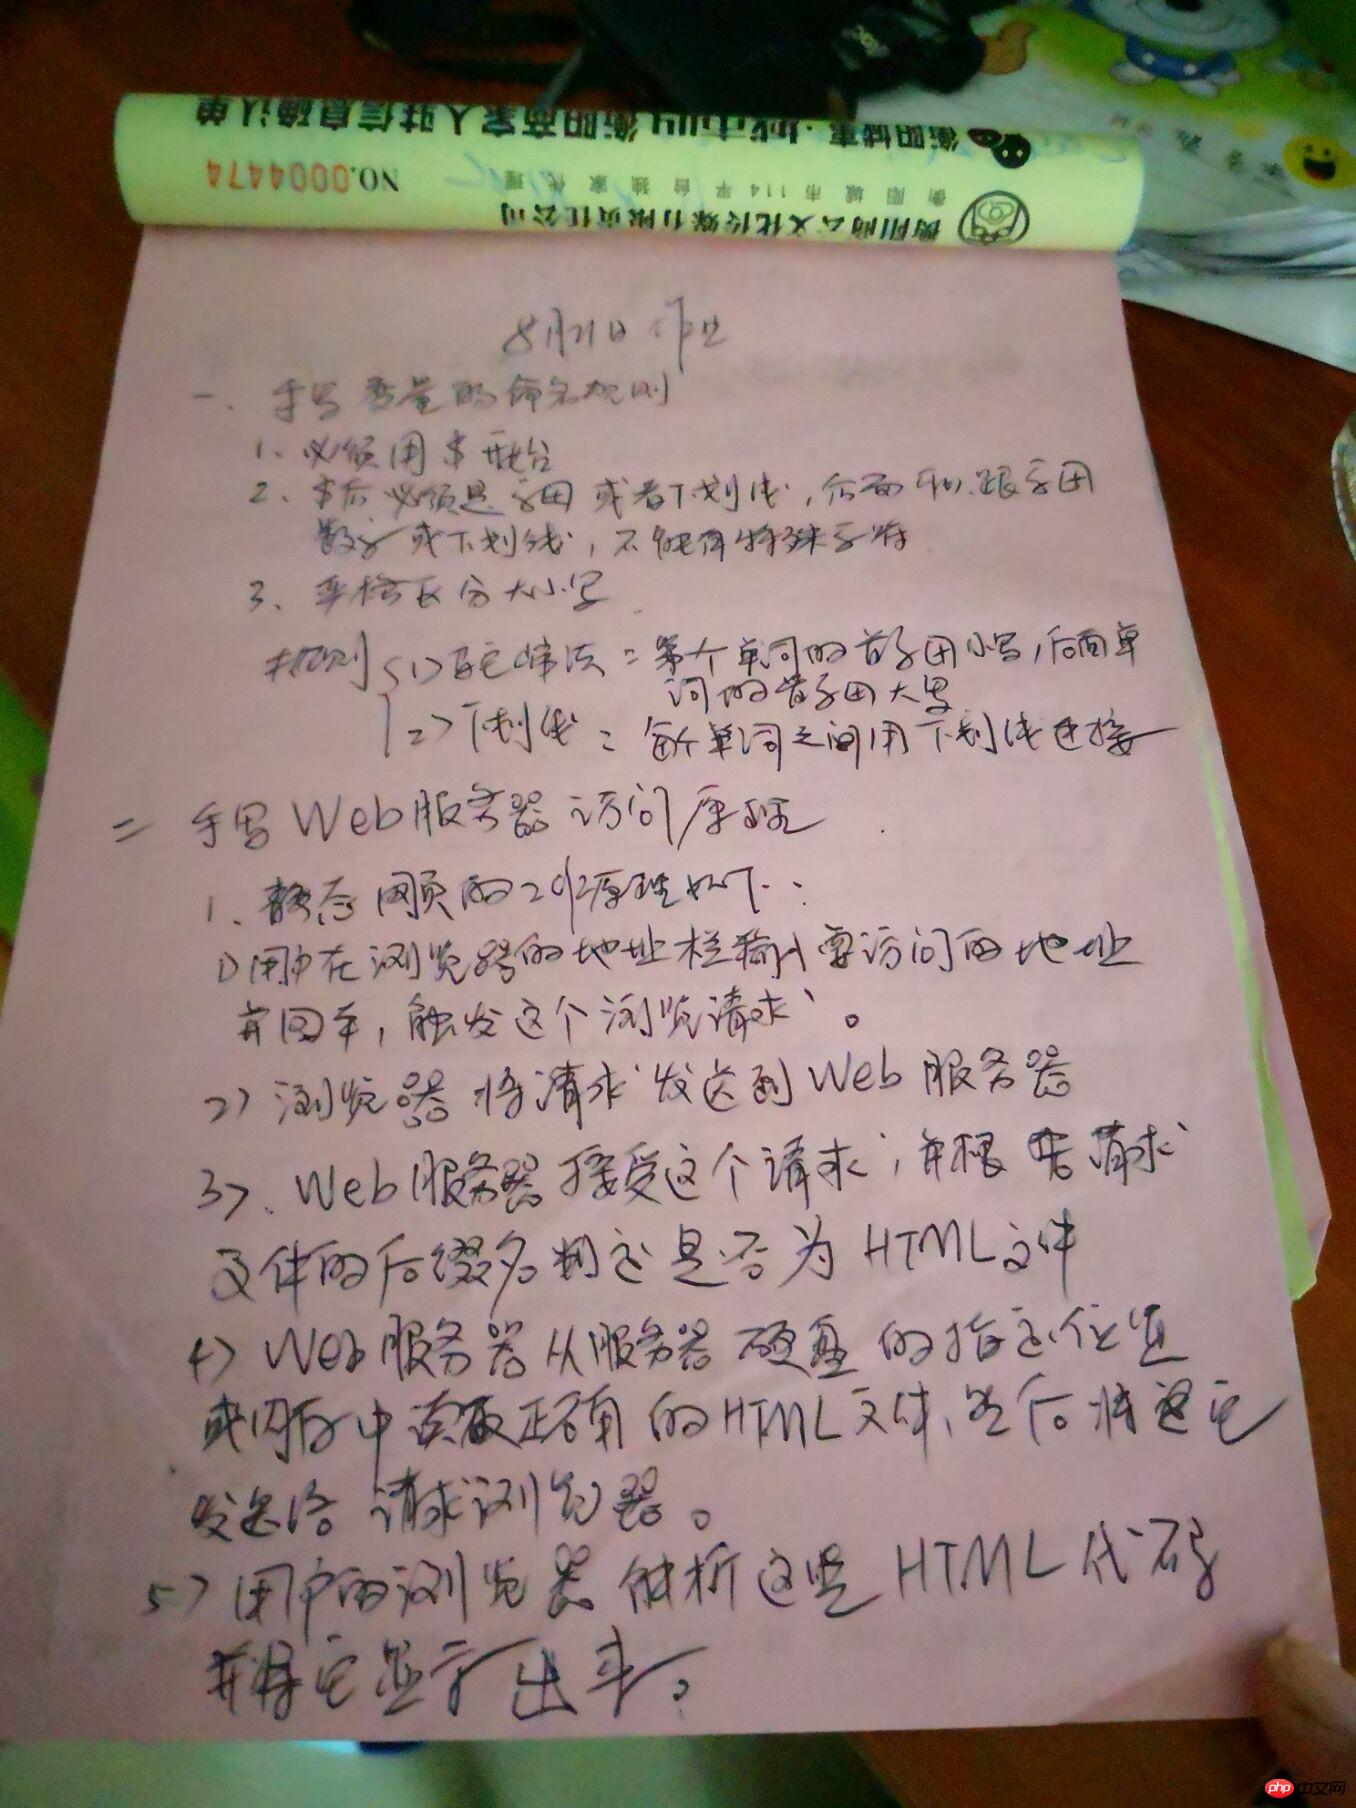 衡阳城事·城市叫 衡阳商家入驻信息确认单
衡阳城市114平台独家代理
NO.0004474
衡阳商云文化传媒有限责任公司
8月21日 作业
一、手写变量的命名规则
1、必须用$开始
2、$后必须是字母或者下划线，后面可以跟字母
数字或下划线，不能有特殊字符
3、严格区分大小写
规则 <1>驼峰法：第一个单词的首字母小写，后面单
词的首字母大写
<2>下划线：每个单词之间用下划线连接
二 手写Web服务器访问原理
1、静态网页的工作原理如下：
1)用户在浏览器的地址栏输入要访问的地址
并回车，触发这个浏览请求。
2)浏览器将请求发送到Web服务器
3)、Web服务器接受这个请求，并根据请求
文件的后缀名判定是否为HTML文件
4)Web服务器从服务器硬盘的指定位置
或内存中读取正确的HTML文件，然后将它
发送给请求浏览器。
5)用户的浏览器解析这些HTML代码
并将它显示出来。
php中文网